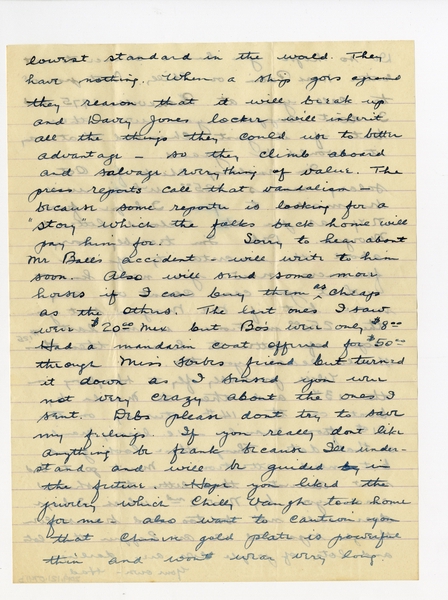 lowest standard in the world. They
have nothing. When a ship goes aground
they reason that it will break up
and Davey Jones locker will inherit
all the things they could use to better
advantage - so they climb aboard
and salvage everything of value. The
press reports call that vandalism -
because some reporter is looking for a
"story" which the folks back home will
pay him for. Sorry to hear about
Mr Ball's accident - will write to him
soon. Also will send some more
horses if I can buy them as cheap
as the others. The last ones I saw
were $20.00 Mex but Bos were only $8.00
Had a mandarin coat offered for $50.00
through Miss friend but turned
it down as I sensed you were
not very crazy about the ones I
sent. Debs please dont try to save
my feelings. If you really dont like
anything be frank because I'll under-
stand and will be guided by in
the future. Hope you liked the
jewelry which Chilly Vaugh took home
for me. also want to caution you
that Chinese gold plate is powerful
thin and wont wear very long.